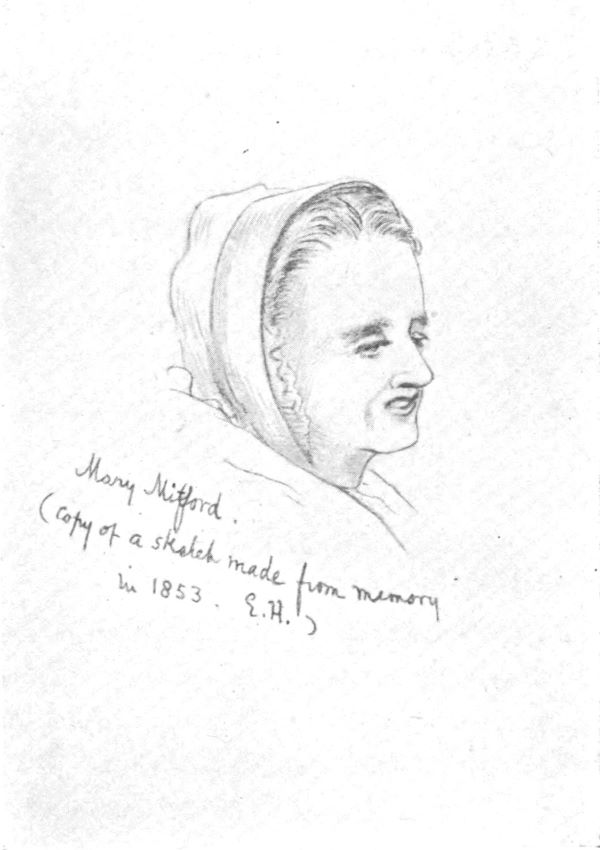 Mary Mitford.
(copy of a sketch made from memory
in 1853. E.H.)